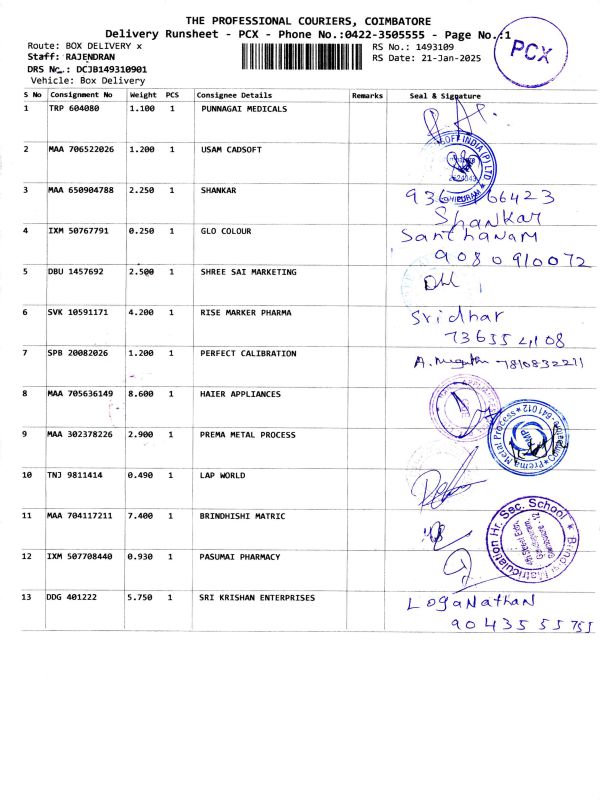 THE PROFESSIONAL COURIERS, COIMBATORE
Delivery Runsheet - PCX - Phone No.:0422-3505555 - Page No.:1
PCX
Route: BOX DELIVERY x
RS No.: 1493109
Staff: RAJENDRAN
RS Date: 21-Jan-2025
DRS No.: DCJB149310901
Vehicle: Box Delivery
S No Consignment No Weight PCS Consignee Details Remarks Seal & Signature
1 TRP 604080 1.100 1 PUNNAGAI MEDICALS
2 MAA 706522026 1.200 1 USAM CADSOFT
SOFT INDIA (P) LTD
3 MAA 650904788 2.250 1 SHANKAR
66423
Shankar
4 IXM 50767791 0.250 1 GLO COLOUR
Santhanam
9080910072
5 DBU 1457692 2.500 1 SHREE SAI MARKETING
6 SVK 10591171 4.200 1 RISE MARKER PHARMA
Sridhar
7 SPB 20082026 1.200 1 PERFECT CALIBRATION
7810832211
8 MAA 705636149 8.600 1 HAIER APPLIANCES
9 MAA 302378226 2.900 1 PREMA METAL PROCESS
Prema Metal Process * 641 012
PMP
10 TNJ 9811414 0.490 1 LAP WORLD
11 MAA 704117211 7.400 1 BRINDHISHI MATRIC
Matriculation Hr. Sec. School
12 IXM 507708440 0.930 1 PASUMAI PHARMACY
13 DDG 401222 5.750 1 SRI KRISHAN ENTERPRISES
Loganathan
90435 55755